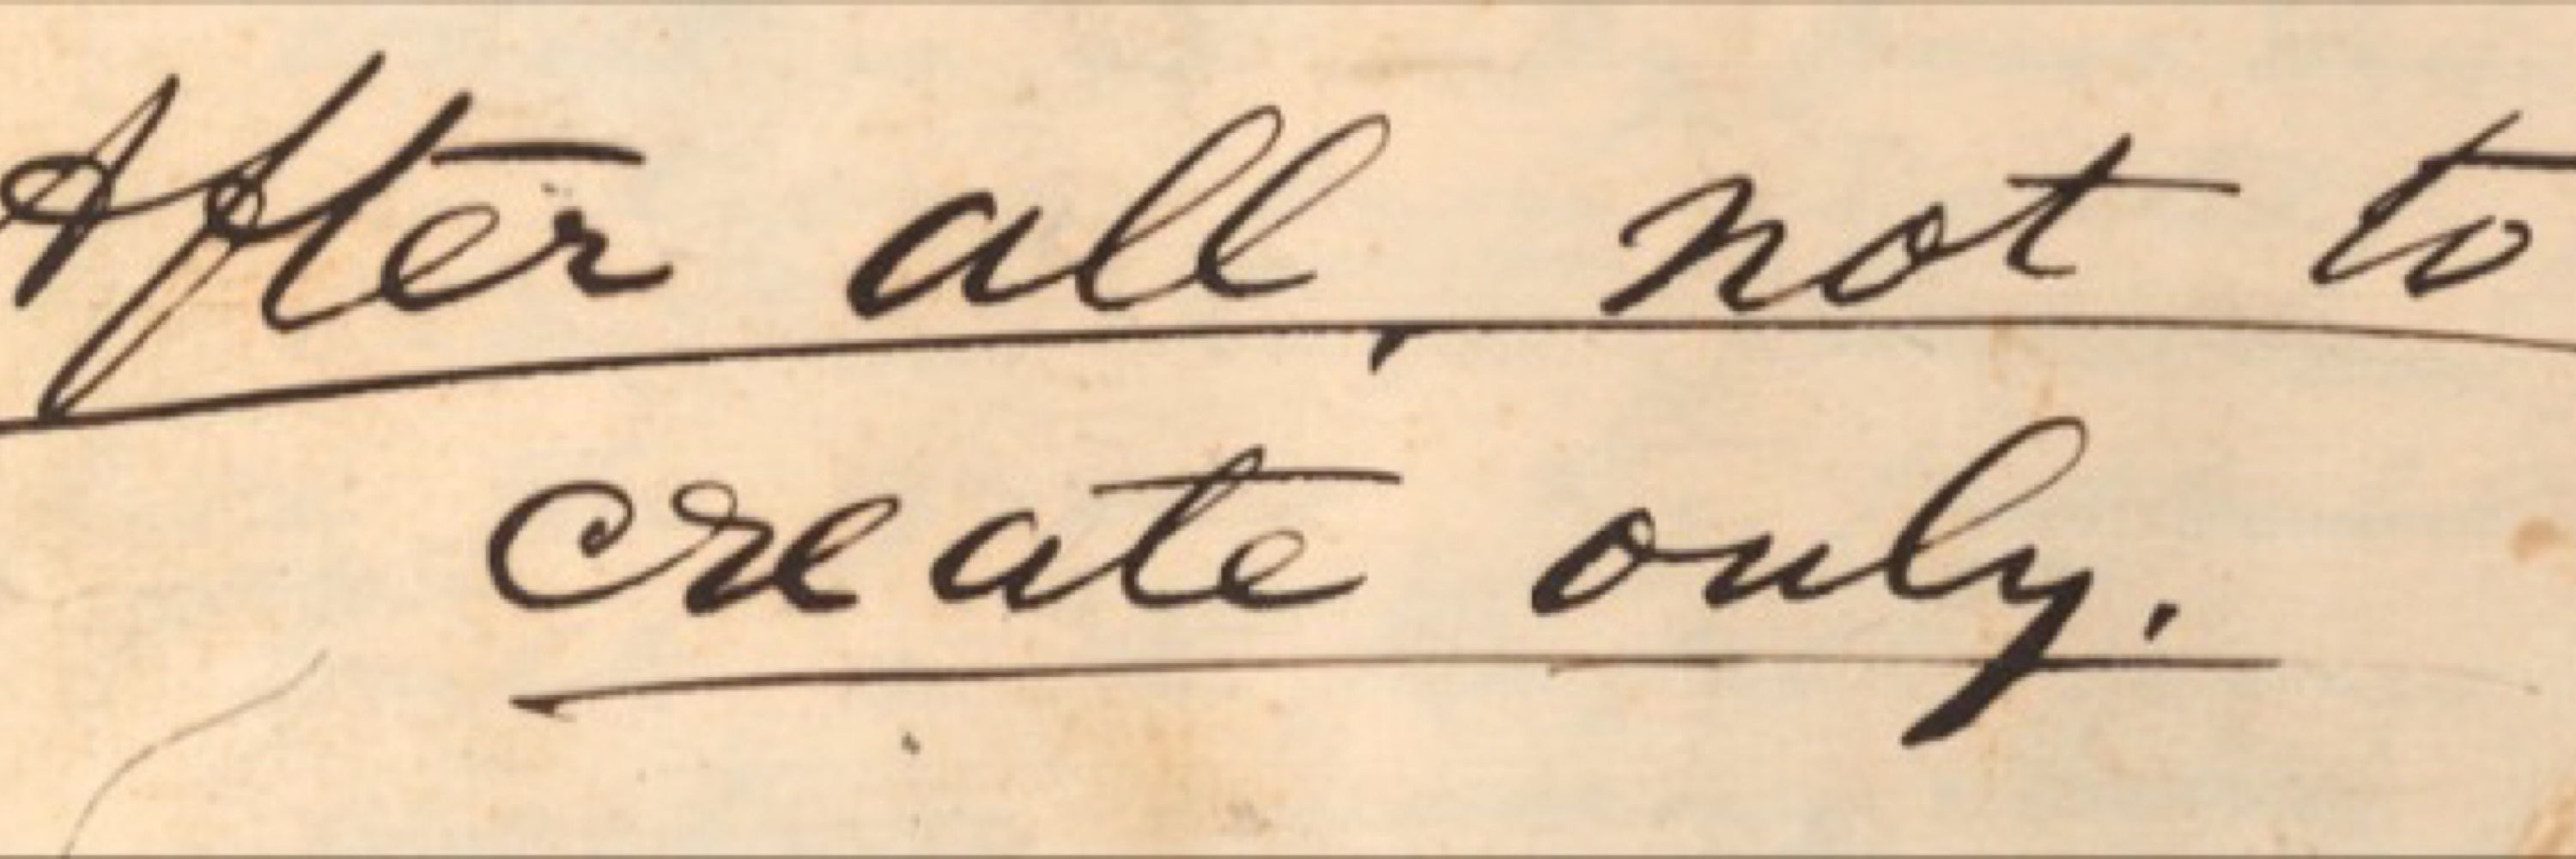 After all, not to
create only.